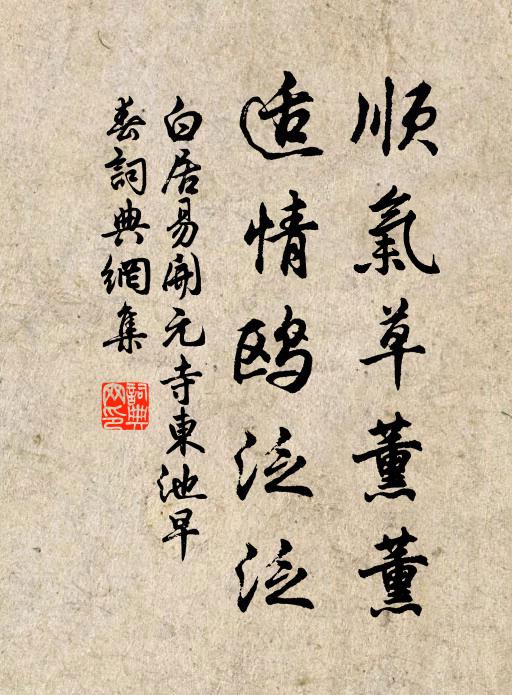 順氣草薰薰
适情鸥泛泛
白居易開元寺東池早
春詞典網集
詞典
网印